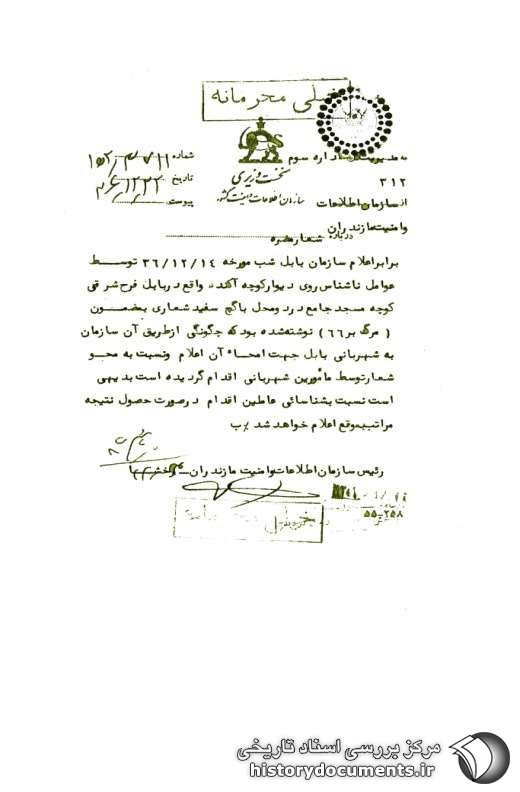 خیلی محرمانه
به مدیریت کل اداره سوم
۳۱۲
از سازمان اطلاعات
وامنیت مازندران
نخست وزیری
سازمان اطلاعات و امنیت کشور
شماره
تاریخ
پیوست
درباره شعار مضره
برابر اعلام سازمان بابل شب مورخه ۳۶/۱۲/۱۴ توسط
عوامل ناشناس روی دیوار کوچه آکنده واقع در بابل فرح شرقی
کوچه مسجد جامع در دو محل با گچ سفید شعاری بمضمون
( مرگ بر ۶۶ ) نوشته شده بود که چگونگی از طریق آن سازمان
به شهربانی بابل جهت امحاء آن اعلام ونسبت به محو
شعار توسط مأمورین شهربانی اقدام گردیده است بدیهی
است نسبت بشناسائی عاملین اقدام در صورت حصول نتیجه
مراتب بموقع اعلام خواهد شد
رئیس سازمان اطلاعات وامنیت مازندران
۵۵-۲۵۸
خیلی محرمانه
مرکز بررسی اسناد تاریخی
historydocuments.ir